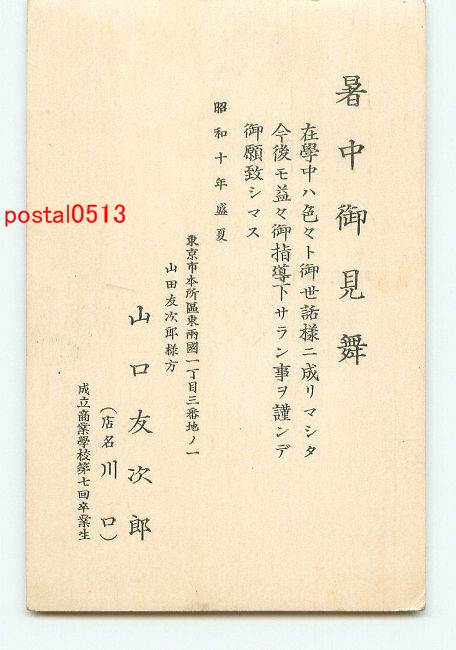 暑中御見舞
在學中ハ色々ト御世話樣ニ成リマシタ
今後モ益々御指導下サラン事ヲ謹ンデ
御願致シマス
昭和十年盛夏
東京市本所區東兩國一丁目三番地ノ一
山田友次郎樣方
山口友次郎
(店名川口)
成立商業學校第七回卒業生
postal0513